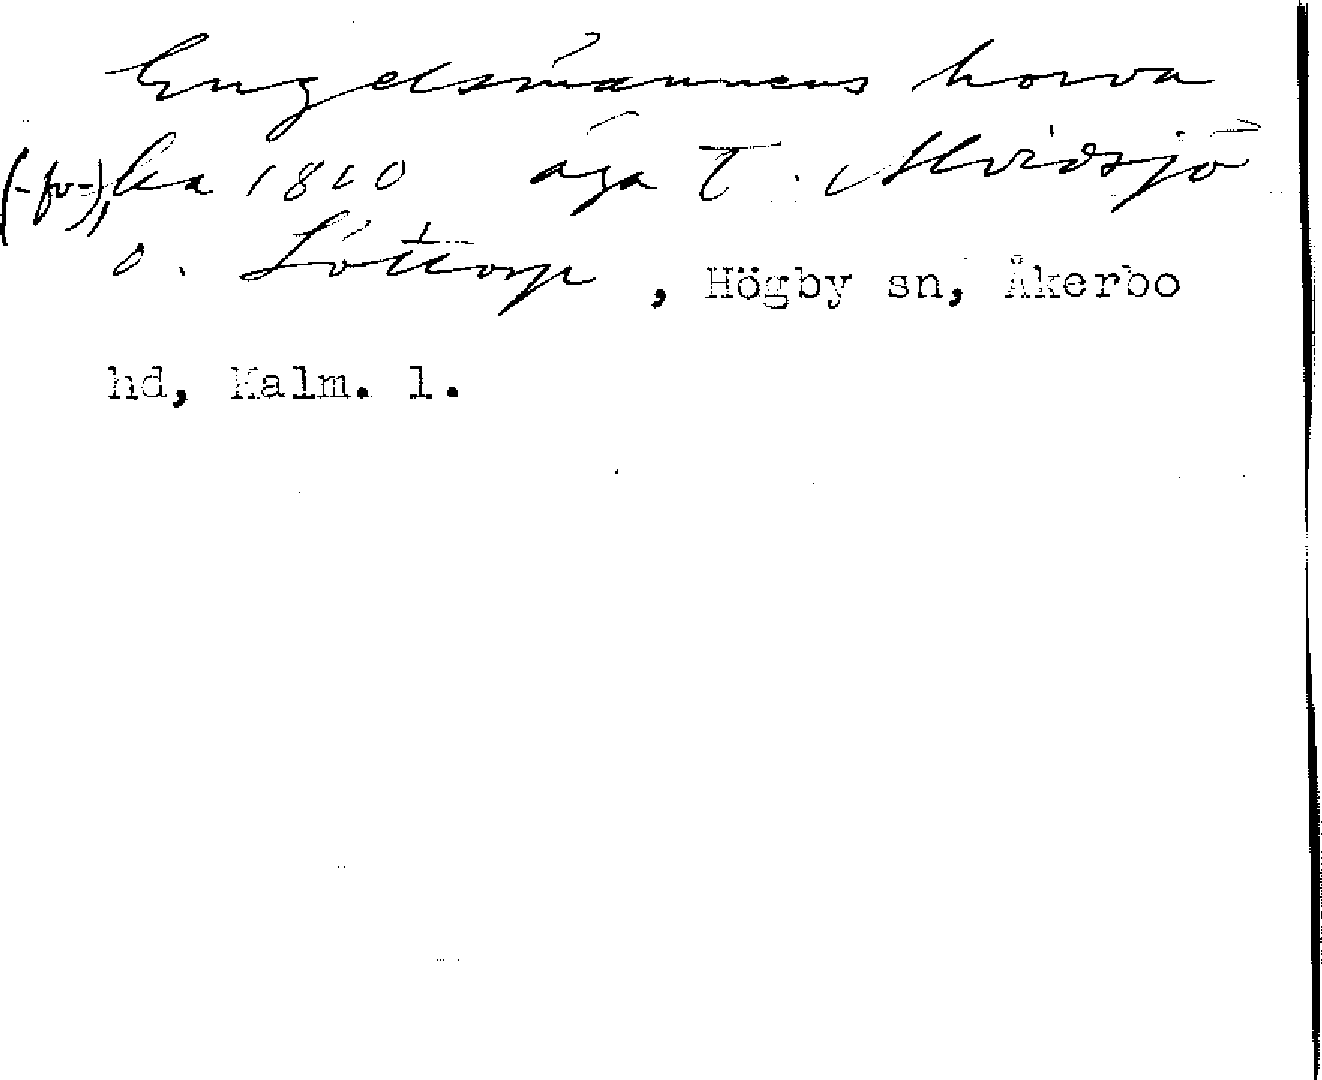 Engelsmannens horva
(-fv-), ka 1820 äga T. Alvidsjö
o. Löttorp, Högby sn, Åkerbo
hd, Kalm. l.